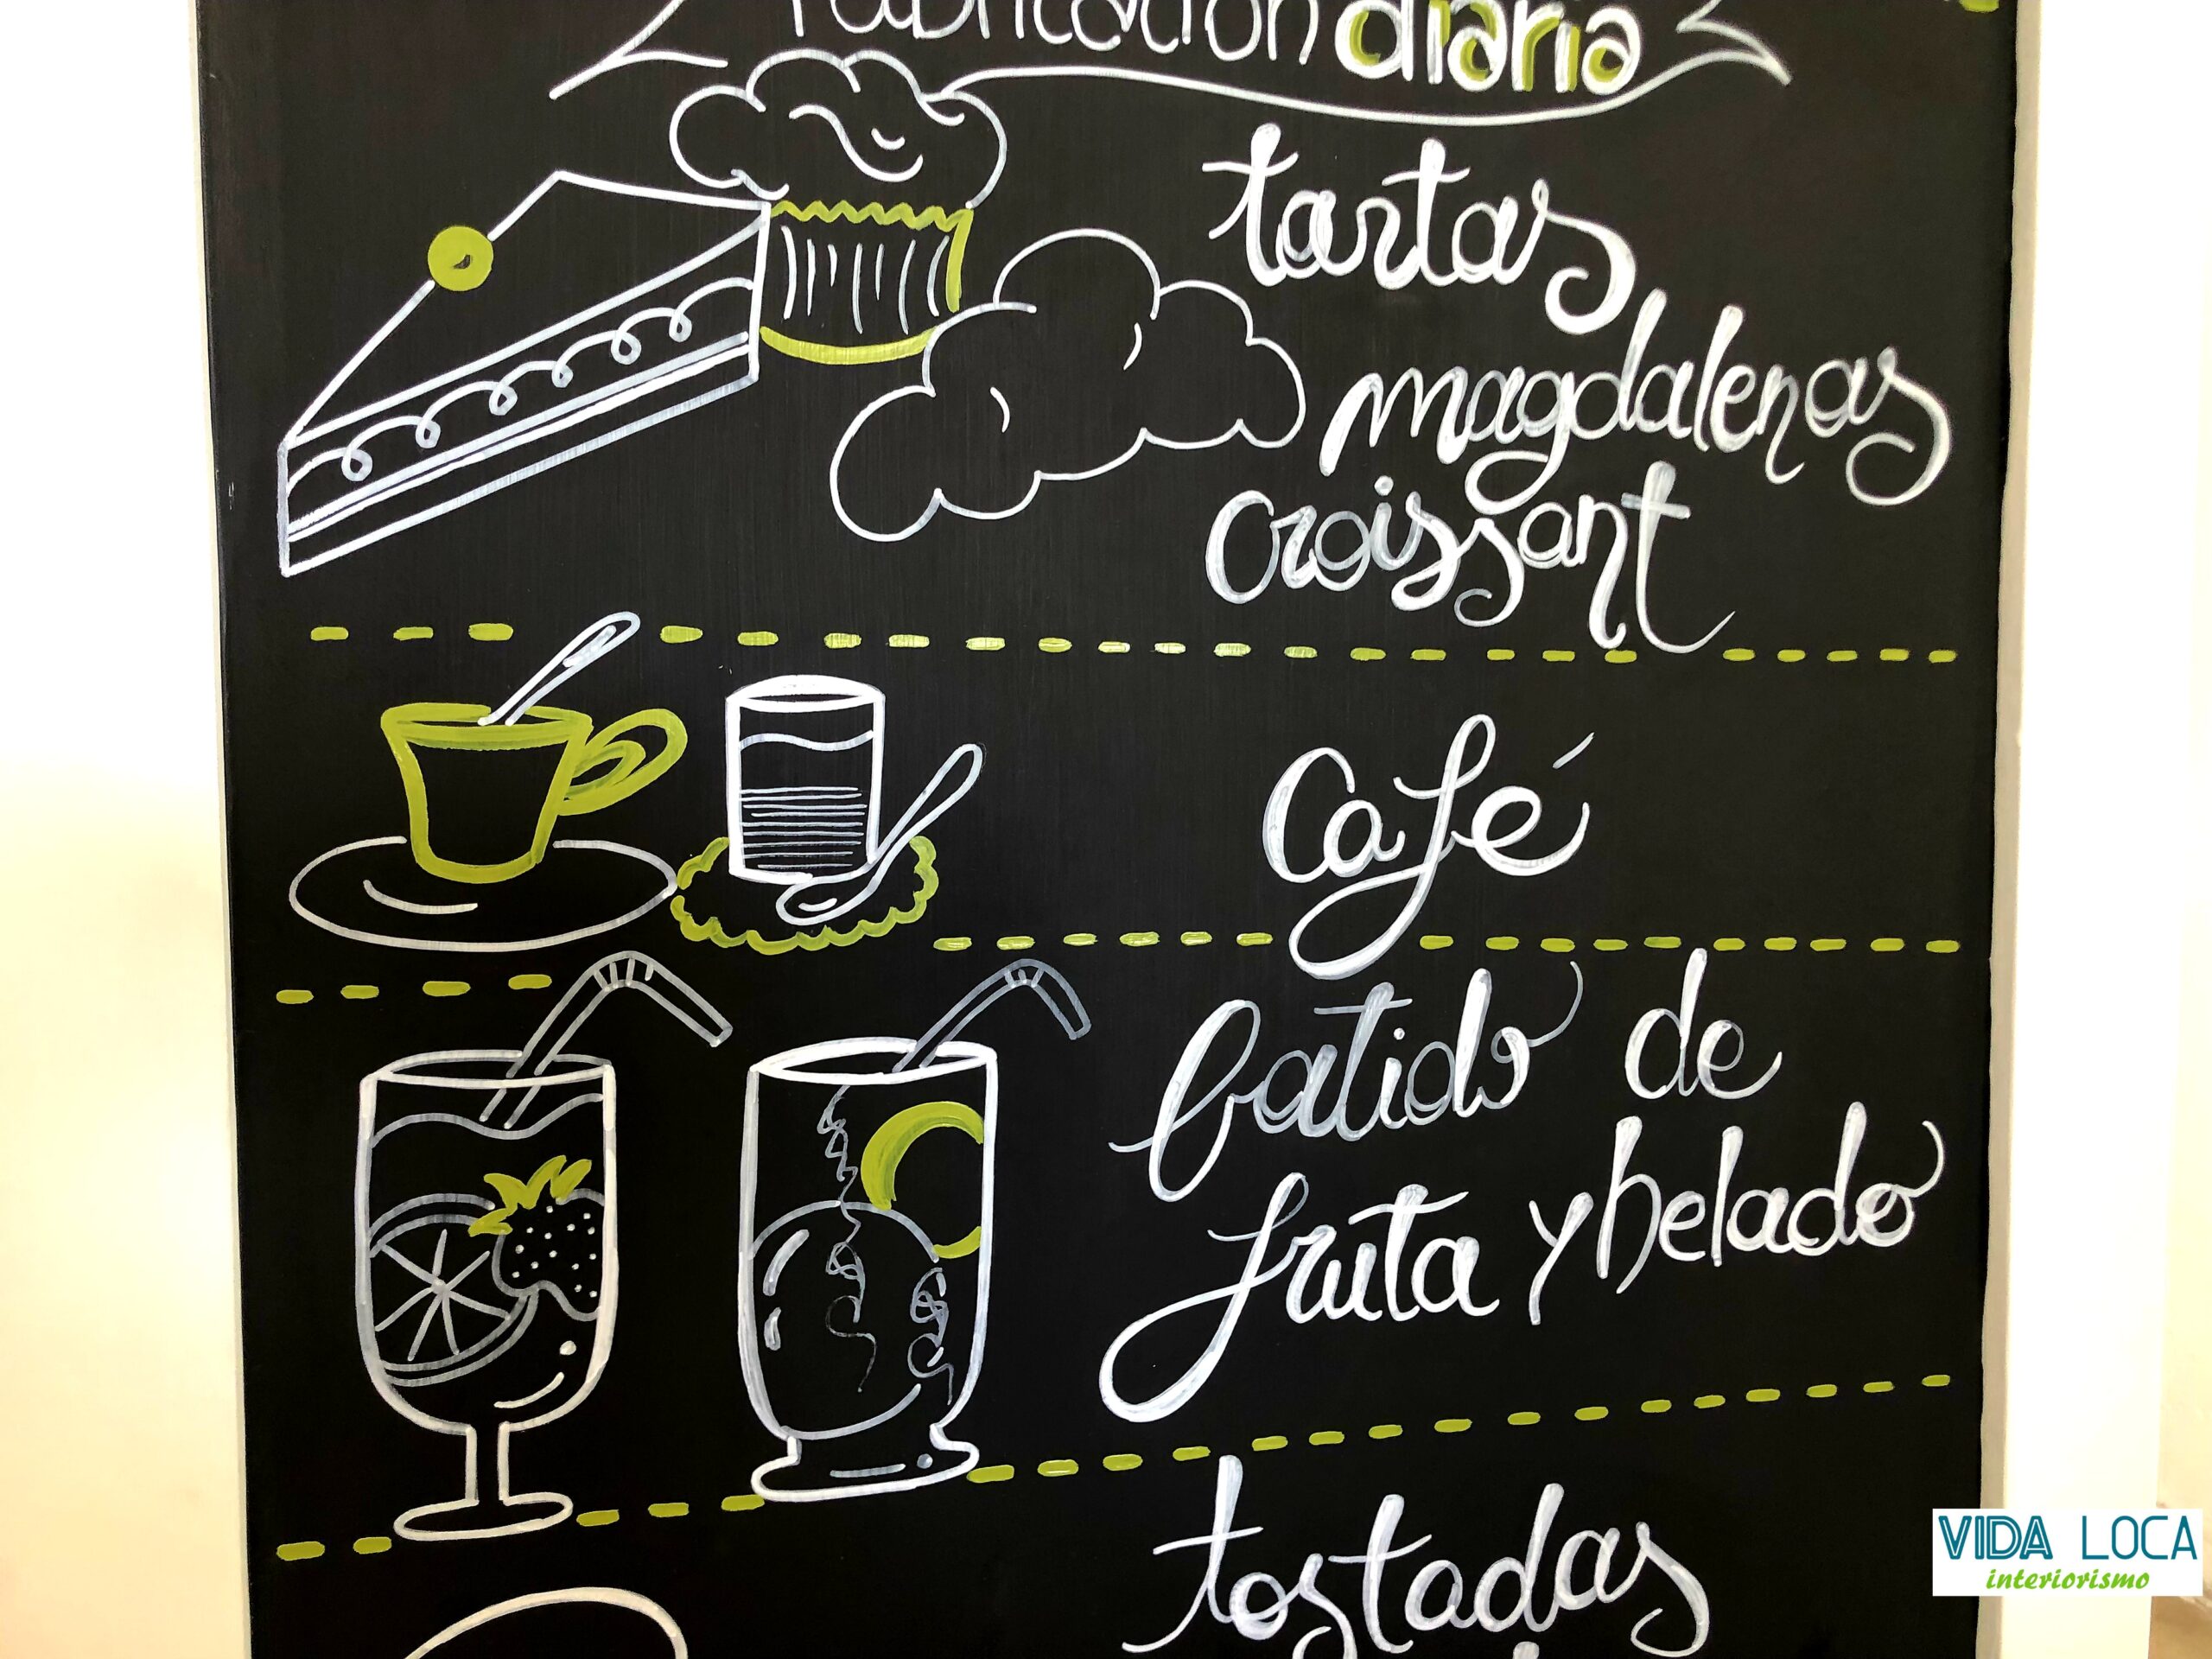 fabricación diaria
tartas
magdalenas
croissant
Café
batido de
fruta y helado
tostadas
VIDA LOCA
interiorismo